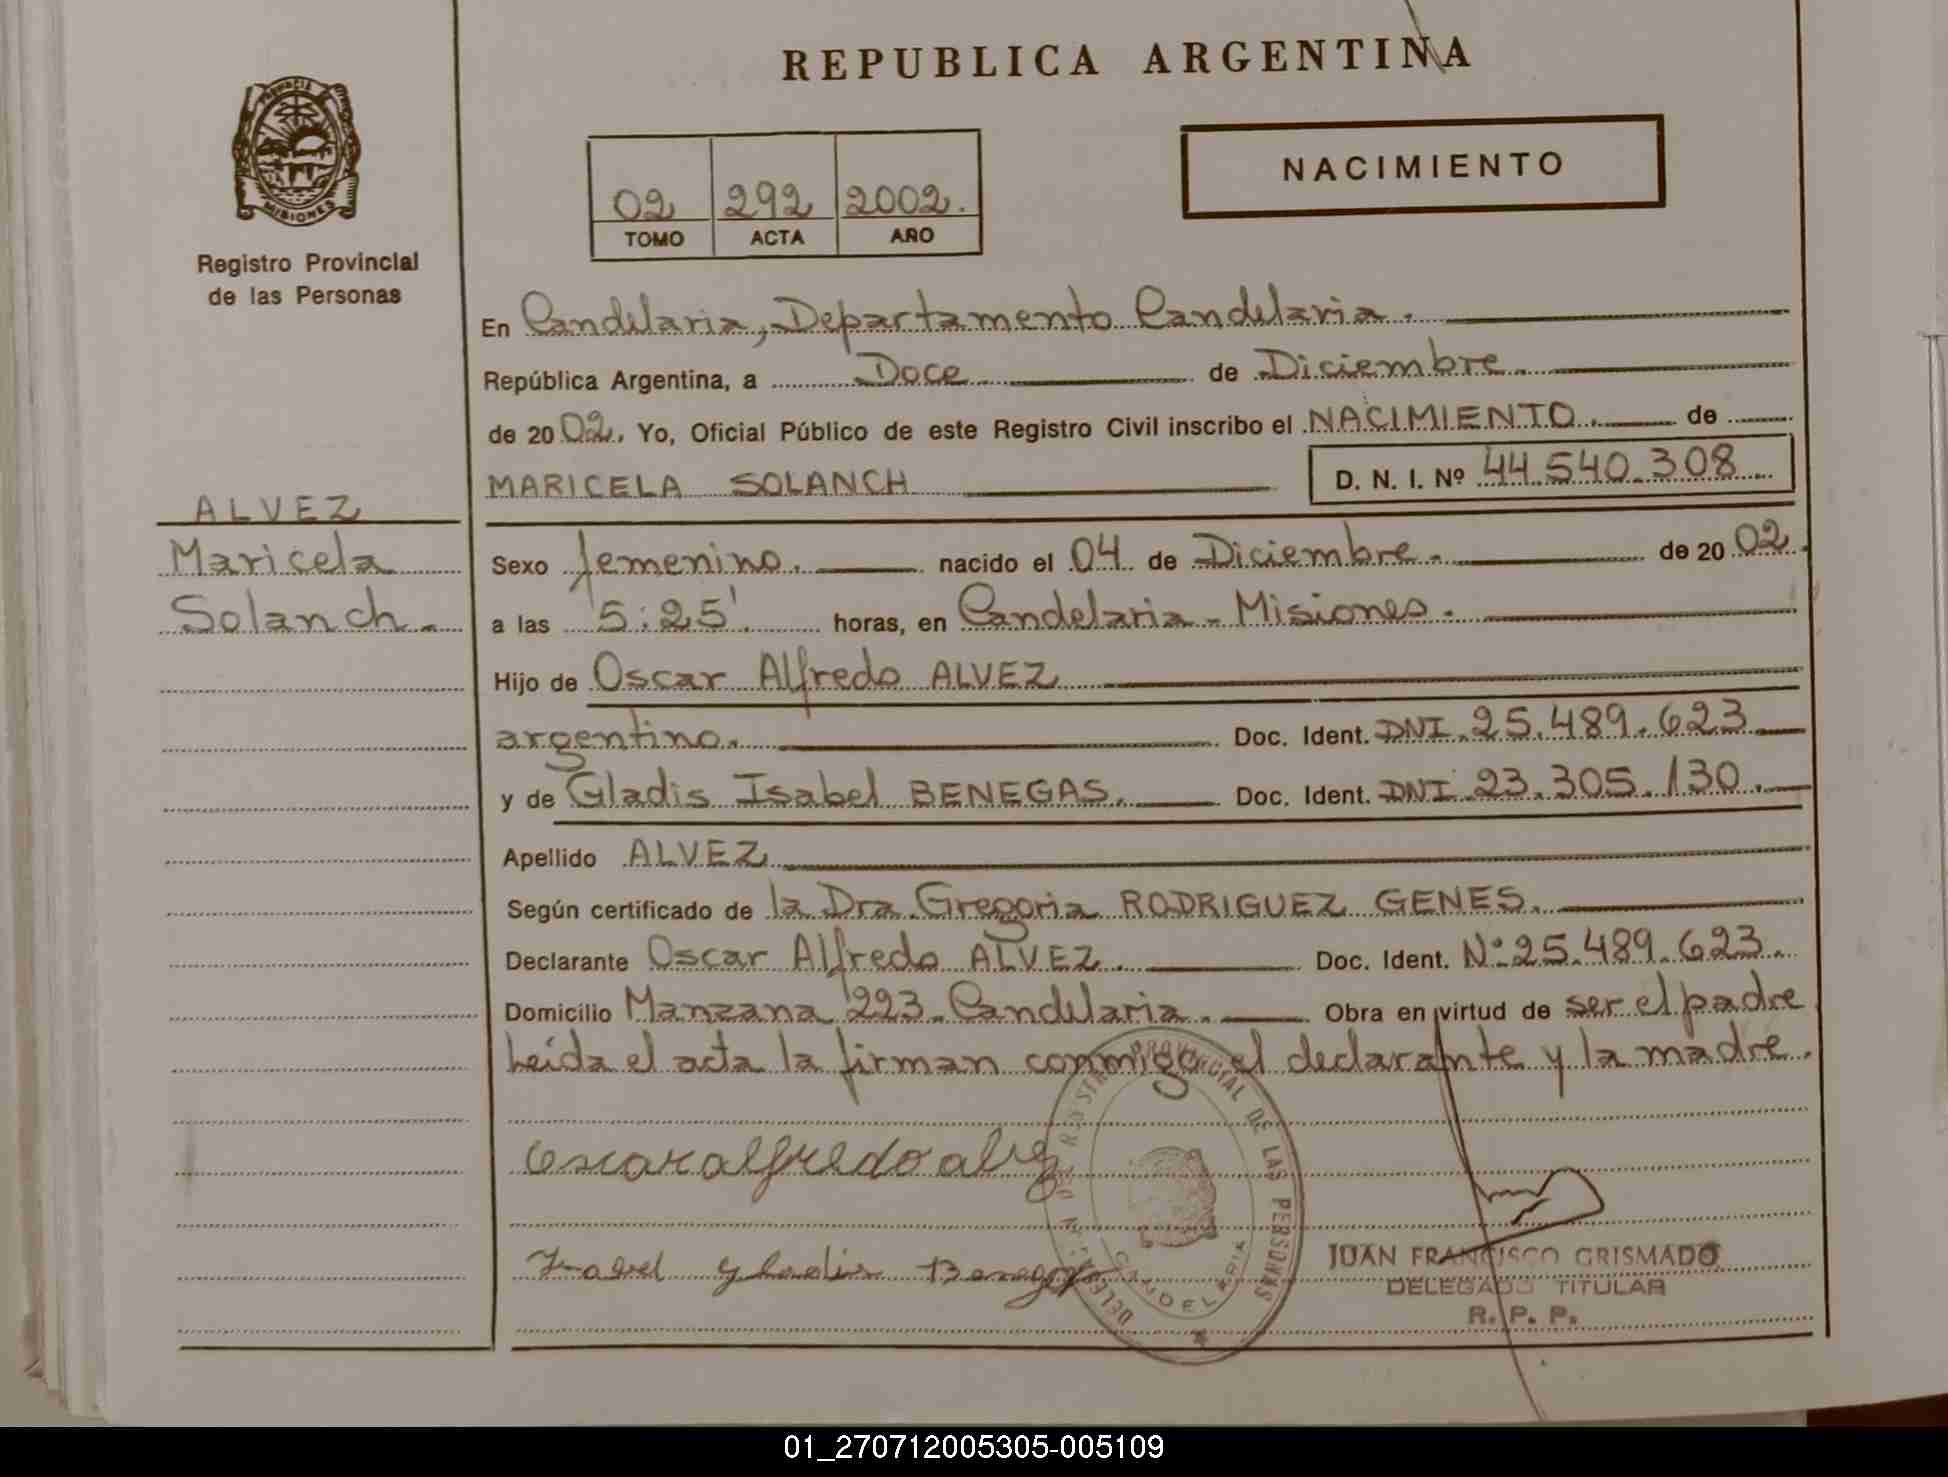 REPUBLICA ARGENTINA
PROVINCIA DE
MISIONES
Registro Provincial
de las Personas
02 292 2002.
TOMO ACTA AÑO
NACIMIENTO
En Candelaria, Departamento Candelaria.
República Argentina, a Doce de Diciembre
de 2002. Yo, Oficial Público de este Registro Civil inscribo el NACIMIENTO. de
MARICELA SOLANCH D. N. I. Nº 44.540.308
ALVEZ
Maricela
Solanch.
Sexo femenino. nacido el 04 de Diciembre. de 2002.
a las 5:25'. horas, en Candelaria - Misiones.
Hijo de Oscar Alfredo ALVEZ
argentino. Doc. Ident. DNI. 25.489.623
y de Gladis Isabel BENEGAS. Doc. Ident. DNI 23.305.130.
Apellido ALVEZ
Según certificado de la Dra. Gregoria RODRIGUEZ GENES.
Declarante Oscar Alfredo ALVEZ. Doc. Ident. Nº 25.489.623.
Domicilio Manzana 223. Candelaria. Obra en virtud de ser el padre
Leída el acta la firman conmigo el declarante y la madre.
oscar alfredo alvez
Isabel Gladis Benegas
REGISTRO PROVINCIAL DE LAS PERSONAS
CANDELARIA
JUAN FRANCISCO GRISMADO
DELEGADO TITULAR
R. P. P.
01_270712005305-005109